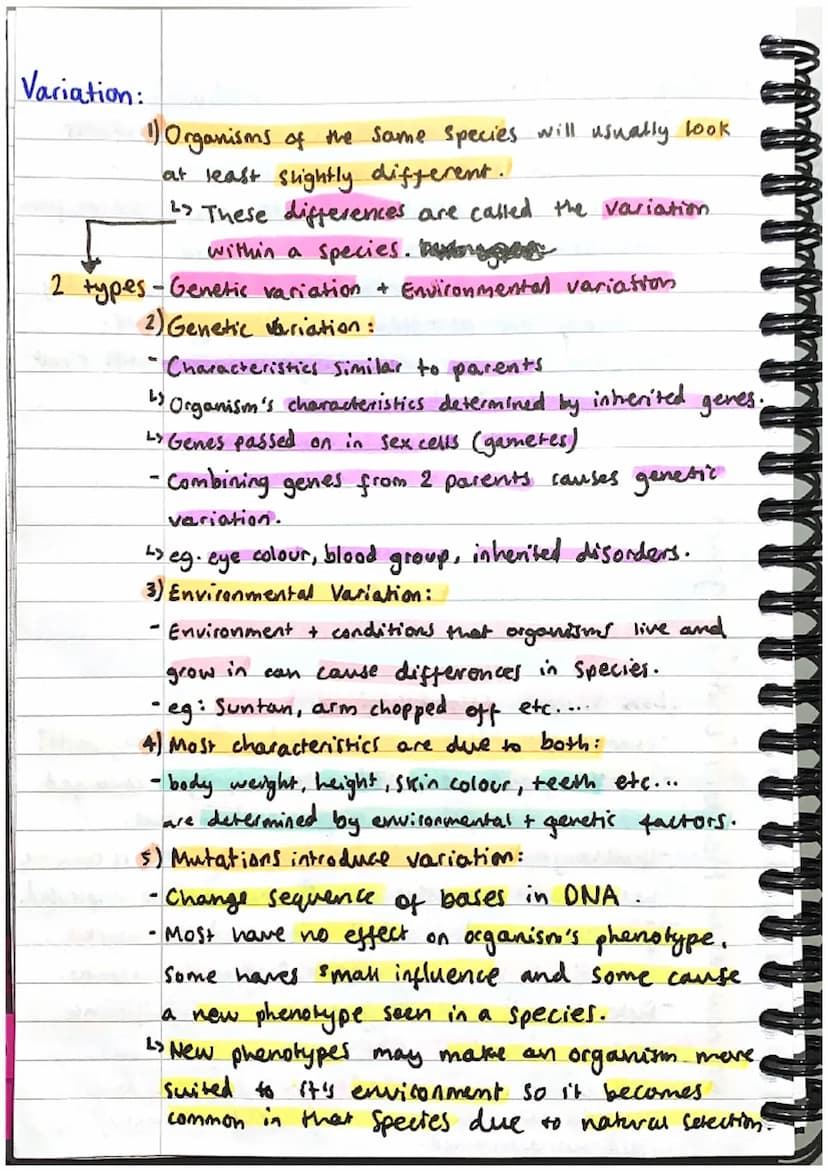 Variation:
1) Organisms of the same species will usually look
at least slightly different.
↳ These differences are called the variation
within a species.
2 types - Genetic variation + Environmental variation
2) Genetic Variation:
- Characteristics similar to parents
↳ Organism's characteristics determined by inherited genes.
↳ Genes passed on in sex cells (gametes)
- Combining genes from 2 parents causes genetic
variation.
↳ eg. eye colour, blood group, inherited disorders.
3) Environmental Variation:
- Environment + conditions that organisms live and
grow in can cause differences in species.
- eg: Suntan, arm chopped off etc....
4) Most characteristics are due to both:
- body weight, height, skin colour, teeth etc...
are determined by environmental + genetic factors.
5) Mutations introduce variation:
- Change sequence of bases in DNA.
- Most have no effect on organism's phenotype,
some haves small influence and some cause
a new phenotype seen in a species.
↳ New phenotypes may make an organism more
suited to it's environment so it becomes
common in that species due to natural selection.